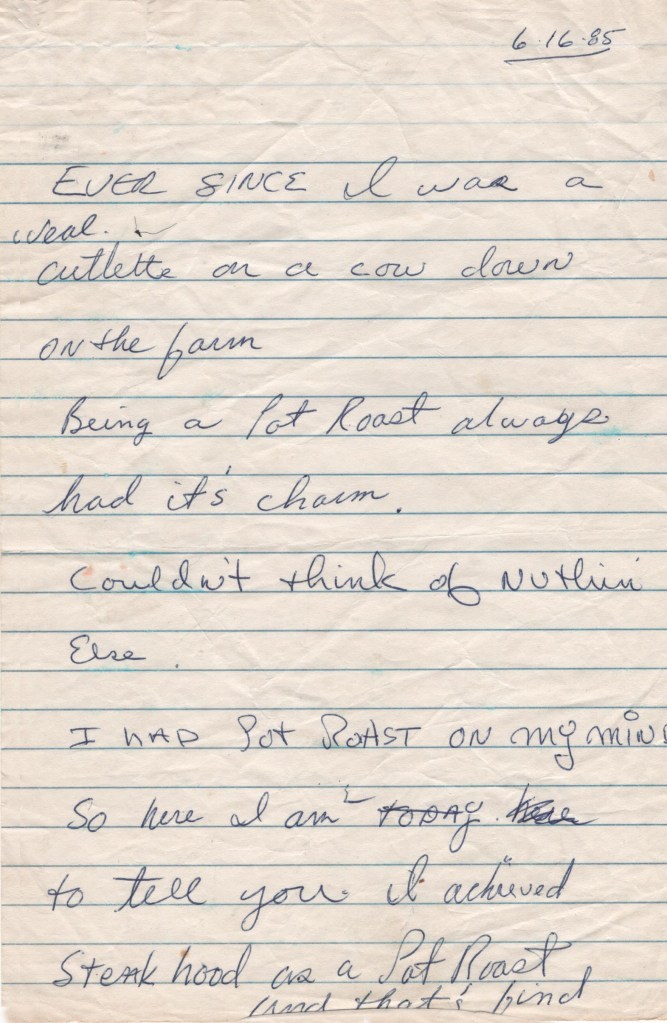 6·16·85
EVER SINCE I was a
veal.
cutlette on a cow down
ON the farm
Being a Pot Roast always
had it's charm.
Couldn't think of Nuthin'
Else.
I HAD Pot ROAST ON my mind
So here I am today. here
to tell you. I achieved
Steak hood as a Pot Roast
and that's